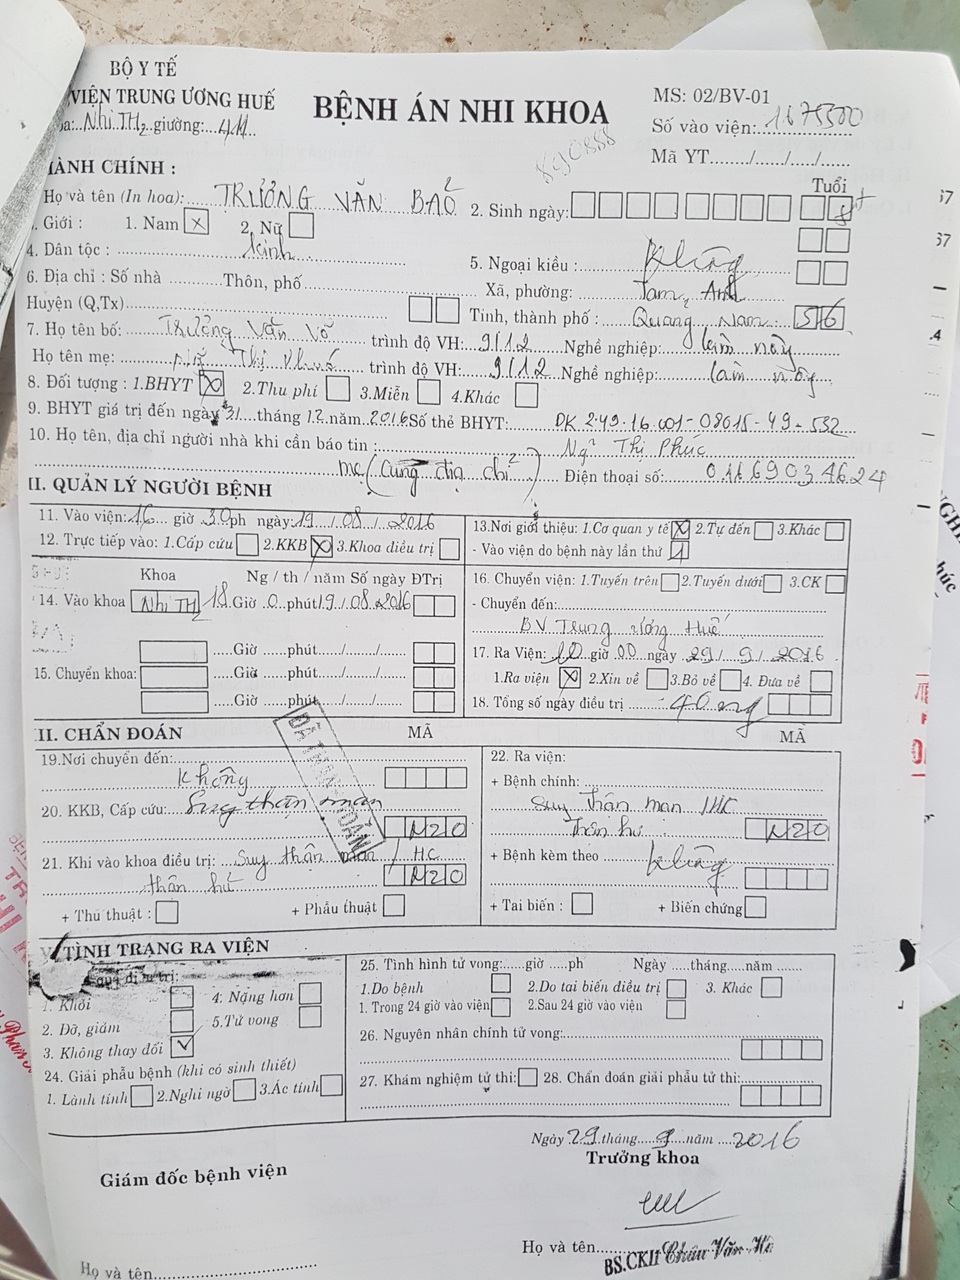 BỘ Y TẾ
VIỆN TRUNG ƯƠNG HUẾ
Nhi TH2 giường: 411
BỆNH ÁN NHI KHOA
MS: 02/BV-01
Số vào viện: 1675500
Mã YT......./....../....../......
890888
HÀNH CHÍNH :
Tuổi
Họ và tên (In hoa): TRƯƠNG VĂN BẢO 2. Sinh ngày:
Giới : 1. Nam X 2. Nữ
4. Dân tộc : kinh 5. Ngoại kiều : Không
6. Địa chỉ : Số nhà Thôn, phố Xã, phường: Tam Anh
Huyện (Q,Tx) Tỉnh, thành phố : Quảng Nam 56
7. Họ tên bố: Trương Văn trình độ VH: 9/12 Nghề nghiệp:
Họ tên mẹ: Thị trình độ VH: 9/12 Nghề nghiệp: làm
8. Đối tượng : 1.BHYT X 2.Thu phí 3.Miễn 4.Khác
9. BHYT giá trị đến ngày 31 tháng 12 năm 2016 Số thẻ BHYT: DK 2-49-16.001-08615-49-532
10. Họ tên, địa chỉ người nhà khi cần báo tin : Thị Phúc
mẹ (Cùng địa chỉ) Điện thoại số: 01169034624
II. QUẢN LÝ NGƯỜI BỆNH
11. Vào viện: 16 giờ 30ph ngày: 19/08/2016
12. Trực tiếp vào: 1.Cấp cứu 2.KKB X 3.Khoa điều trị
13.Nơi giới thiệu: 1.Cơ quan y tế X 2.Tự đến 3.Khác
- Vào viện do bệnh này lần thứ 1
Khoa Ng / th / năm Số ngày ĐTrị
14. Vào khoa Nhi TH2 18 Giờ 0 phút 19/08.2016
....Giờ .....phút....../....../......
15. Chuyển khoa: ....Giờ .....phút....../....../......
....Giờ .....phút....../....../......
16. Chuyển viện: 1.Tuyến trên 2.Tuyến dưới 3.CK
- Chuyển đến:
BV Trung ương Huế
17. Ra Viện: 10 giờ 00 ngày 29/9/2016
1.Ra viện X 2.Xin về 3.Bỏ về 4. Đưa về
18. Tổng số ngày điều trị 40 ng
II. CHẨN ĐOÁN MÃ MÃ
ĐÃ THANH TOÁN
19.Nơi chuyển đến:
Không
20. KKB, Cấp cứu: Suy thận mạn
N20
21. Khi vào khoa điều trị: Suy thận mạn / HC
thận hư N20
+ Thủ thuật : + Phẫu thuật
22. Ra viện:
+ Bệnh chính:
Suy thận mạn /HC
Thận hư N20
+ Bệnh kèm theo Không
+ Tai biến : + Biến chứng
TÌNH TRẠNG RA VIỆN
quả điều trị:
1. Khỏi 4. Nặng hơn
2. Đỡ, giảm 5.Tử vong
3. Không thay đổi ✓
24. Giải phẫu bệnh (khi có sinh thiết)
1. Lành tính 2.Nghi ngờ 3.Ác tính
25. Tình hình tử vong:......giờ ....ph Ngày .....tháng.....năm .......
1.Do bệnh 2.Do tai biến điều trị 3. Khác
1. Trong 24 giờ vào viện 2.Sau 24 giờ vào viện
26. Nguyên nhân chính tử vong:
27. Khám nghiệm tử thi: 28. Chẩn đoán giải phẫu tử thi:
Ngày 29 tháng 9 năm 2016
Giám đốc bệnh viện
Trưởng khoa
Họ và tên
Họ và tên BS.CKII Châu Văn Hà